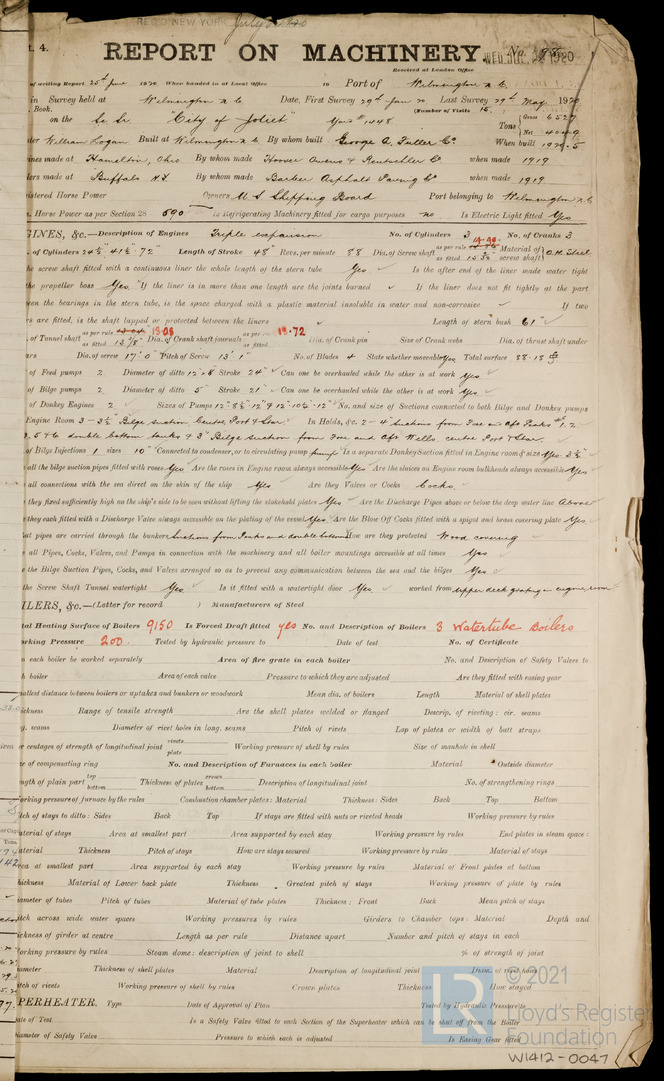 REC'D NEW YORK July
t. 4.
REPORT ON MACHINERY. No.
WED. 1920
Received at London Office
of writing Report 25th June 1920 When handed in at Local Office 19 Port of Wilmington N.C.
in Survey held at Wilmington N.C. Date, First Survey 29th Jan 20 Last Survey 29th May 1920
Book. (Number of Visits 15
on the S.S. "City of Joliet" Gross 6527
Tons Net
William Logan Built at Wilmington N.C. By whom built George A. Fuller Co. When built 1920.5
ines made at Hamilton, Ohio By whom made Hooven Owens & Rentschler Co when made 1919
ers made at Buffalo N.Y. By whom made Barber Asphalt Paving Co when made 1919
istered Horse Power Owners U S Shipping Board Port belonging to Wilmington N.C.
. Horse Power as per Section 28 590 Is Refrigerating Machinery fitted for cargo purposes no Is Electric Light fitted Yes
GINES, &c.—Description of Engines Triple expansion No. of Cylinders 3 No. of Cranks 3
of Cylinders 24½" 41½" 72" Length of Stroke 48" Revs. per minute 88 Dia. of Screw shaft as per rule as fitted 15¾" Material of screw shaft O.H. Steel
he screw shaft fitted with a continuous liner the whole length of the stern tube Yes Is the after end of the liner made water tight
the propeller boss Yes If the liner is in more than one length are the joints burned If the liner does not fit tightly at the part
een the bearings in the stern tube, is the space charged with a plastic material insoluble in water and non-corrosive If two
rs are fitted, is the shaft lapped or protected between the liners Length of stern bush 61"
of Tunnel shaft as per rule 13.08 as fitted 13⅞" Dia. of Crank shaft journals as per rule 13.72 as fitted Dia. of Crank pin Size of Crank webs Dia. of thrust shaft under
ars Dia. of screw 17'.0" Pitch of Screw 13'.1" No. of Blades 4 State whether moveable Yes Total surface 88.18
of Feed pumps 2 Diameter of ditto 12 × 8 Stroke 24" Can one be overhauled while the other is at work yes
of Bilge pumps 2 Diameter of ditto 5" Stroke 21" Can one be overhauled while the other is at work yes
of Donkey Engines 2 Sizes of Pumps No. and size of Suctions connected to both Bilge and Donkey pumps
Engine Room 3 - 3½" Bilge suction Centre Port & Star. In Holds, &c. 2 - 4" suctions from Fore and Aft Peaks
double bottom tanks 4 3" Bilge suction from Fore and Aft Wells, centre Port & Star.
of Bilge Injections 1 sizes 10" Connected to condenser, or to circulating pump pump Is a separate Donkey Suction fitted in Engine room & size Yes. 3½"
all the bilge suction pipes fitted with roses Yes Are the roses in Engine room always accessible Yes Are the sluices on Engine room bulkheads always accessible Yes
all connections with the sea direct on the skin of the ship Yes Are they Valves or Cocks Cocks.
they fixed sufficiently high on the ship's side to be seen without lifting the stokehold plates Yes Are the Discharge Pipes above or below the deep water line Above
they each fitted with a Discharge Valve always accessible on the plating of the vessel Yes Are the Blow Off Cocks fitted with a spigot and brass covering plate Yes
at pipes are carried through the bunkers Suctions from Peaks and double bottom How are they protected Wood covering
all Pipes, Cocks, Valves, and Pumps in connection with the machinery and all boiler mountings accessible at all times Yes
the Bilge Suction Pipes, Cocks, and Valves arranged so as to prevent any communication between the sea and the bilges Yes
the Screw Shaft Tunnel watertight Yes Is it fitted with a watertight door Yes worked from upper deck grating in engine room
ILERS, &c.—(Letter for record ) Manufacturers of Steel
tal Heating Surface of Boilers 9150 Is Forced Draft fitted yes No. and Description of Boilers 3 Watertube Boilers
rking Pressure 200 Tested by hydraulic pressure to Date of test No. of Certificate
n each boiler be worked separately Area of fire grate in each boiler No. and Description of Safety Valves to
h boiler Area of each valve Pressure to which they are adjusted Are they fitted with easing gear
allest distance between boilers or uptakes and bunkers or woodwork Mean dia. of boilers Length Material of shell plates
ickness Range of tensile strength Are the shell plates welded or flanged Descrip. of riveting: cir. seams
g. seams Diameter of rivet holes in long. seams Pitch of rivets Lap of plates or width of butt straps
er centages of strength of longitudinal joint rivets plate Working pressure of shell by rules Size of manhole in shell
e of compensating ring No. and Description of Furnaces in each boiler Material Outside diameter
ngth of plain part top bottom Thickness of plates crown bottom Description of longitudinal joint No. of strengthening rings
orking pressure of furnace by the rules Combustion chamber plates: Material Thickness: Sides Back Top Bottom
tch of stays to ditto: Sides Back Top If stays are fitted with nuts or riveted heads Working pressure by rules
aterial of stays Area at smallest part Area supported by each stay Working pressure by rules End plates in steam space:
aterial Thickness Pitch of stays How are stays secured Working pressure by rules Material of stays
rea at smallest part Area supported by each stay Working pressure by rules Material of Front plates at bottom
hickness Material of Lower back plate Thickness Greatest pitch of stays Working pressure of plate by rules
iameter of tubes Pitch of tubes Material of tube plates Thickness: Front Back Mean pitch of stays
itch across wide water spaces Working pressures by rules Girders to Chamber tops: Material Depth and
ickness of girder at centre Length as per rule Distance apart Number and pitch of stays in each
orking pressure by rules Steam dome: description of joint to shell % of strength of joint
iameter Thickness of shell plates Material Description of longitudinal joint Diam. of rivet holes
itch of rivets Working pressure of shell by rules Crown plates Thickness How stayed
PERHEATER. Type Date of Approval of Plan Tested by Hydraulic Pressure to
ate of Test Is a Safety Valve fitted to each Section of the Superheater which can be shut off from the Boiler
iameter of Safety Valve Pressure to which each is adjusted Is Easing Gear fitted
LR © 2021
Lloyd's Register
Foundation
W1412-0047